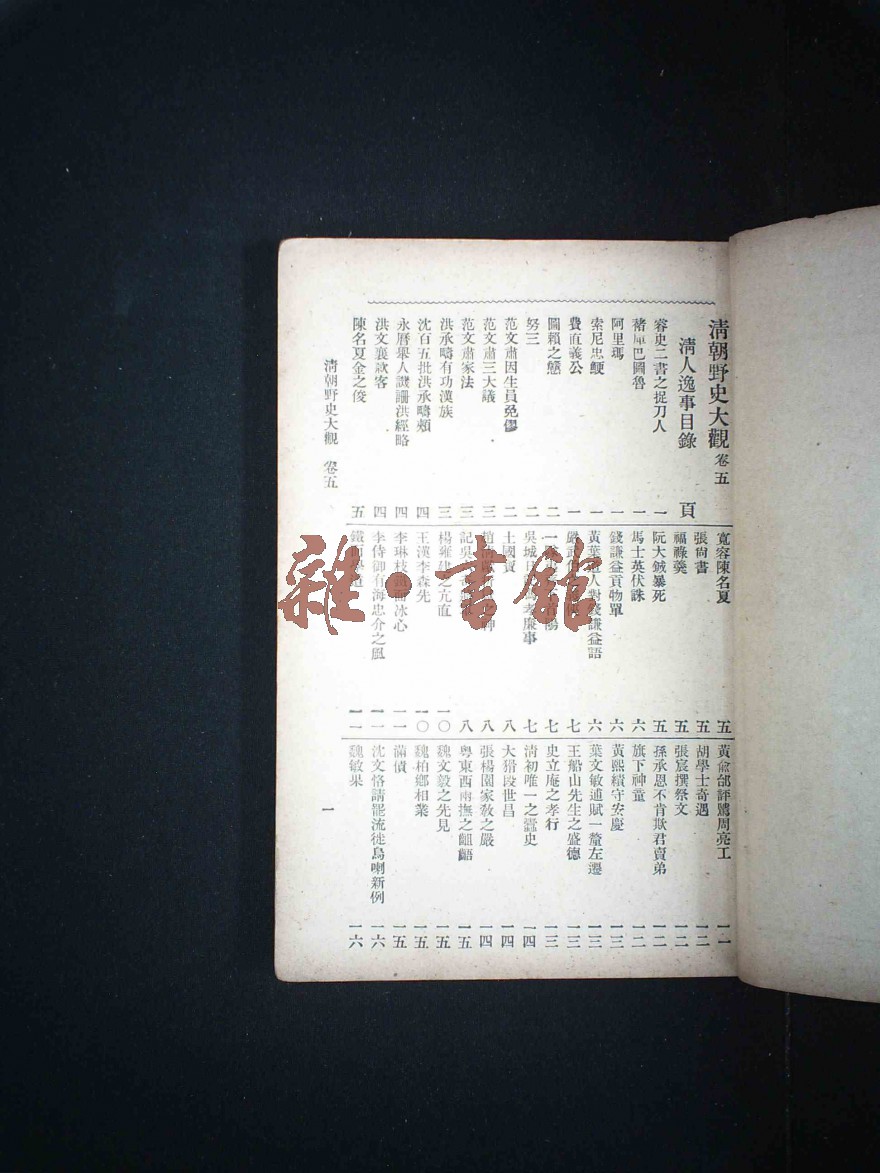 清朝野史大觀 卷五
清人逸事目錄 頁
睿史二書之捉刀人 一
豬厙巴圖魯 一
阿里瑪 一
索尼忠鯁 一
費直義公 一
圖賴之戇 二
努三 二
范文肅因生員免僇 二
范文肅三大議 三
范文肅家法 三
洪承疇有功漢族 三
沈百五批洪承疇頰 四
永曆舉人譏訕洪經略 四
洪文襄欺客 四
陳名夏金之俊 五
寬容陳名夏 五
張尚書 五
福祿羹 五
阮大鋮暴死 五
馬士英伏誅 六
錢謙益貢物單 六
黃葉道人對錢謙益語 六
嚴武伯 七
一 七
吳城日 孝廉事 七
土國寶 八
神 八
記吳 八
楊雍建之亢直 一〇
王漢李森先 一〇
李琳枝鐵面冰心 一一
李侍御有海忠介之風 一一
鐵面學道 一一
黃俞邰評騭周亮工 一一
胡學士奇遇 一二
張宸撰祭文 一二
孫承恩不肯欺君賣弟 一二
旗下神童 一二
黃熙纘守安慶 一三
葉文敏逋賦一釐左遷 一三
王船山先生之盛德 一三
史立庵之孝行 一三
清初唯一之蠹史 一四
大猾段世昌 一四
張楊園家教之嚴 一四
粵東西兩撫之齟齬 一五
魏文毅之先見 一五
魏柏鄉相業 一五
滿債 一五
沈文恪請罷流徙烏喇新例 一六
魏敏果 一六
清朝野史大觀 卷五
一
雜·書館